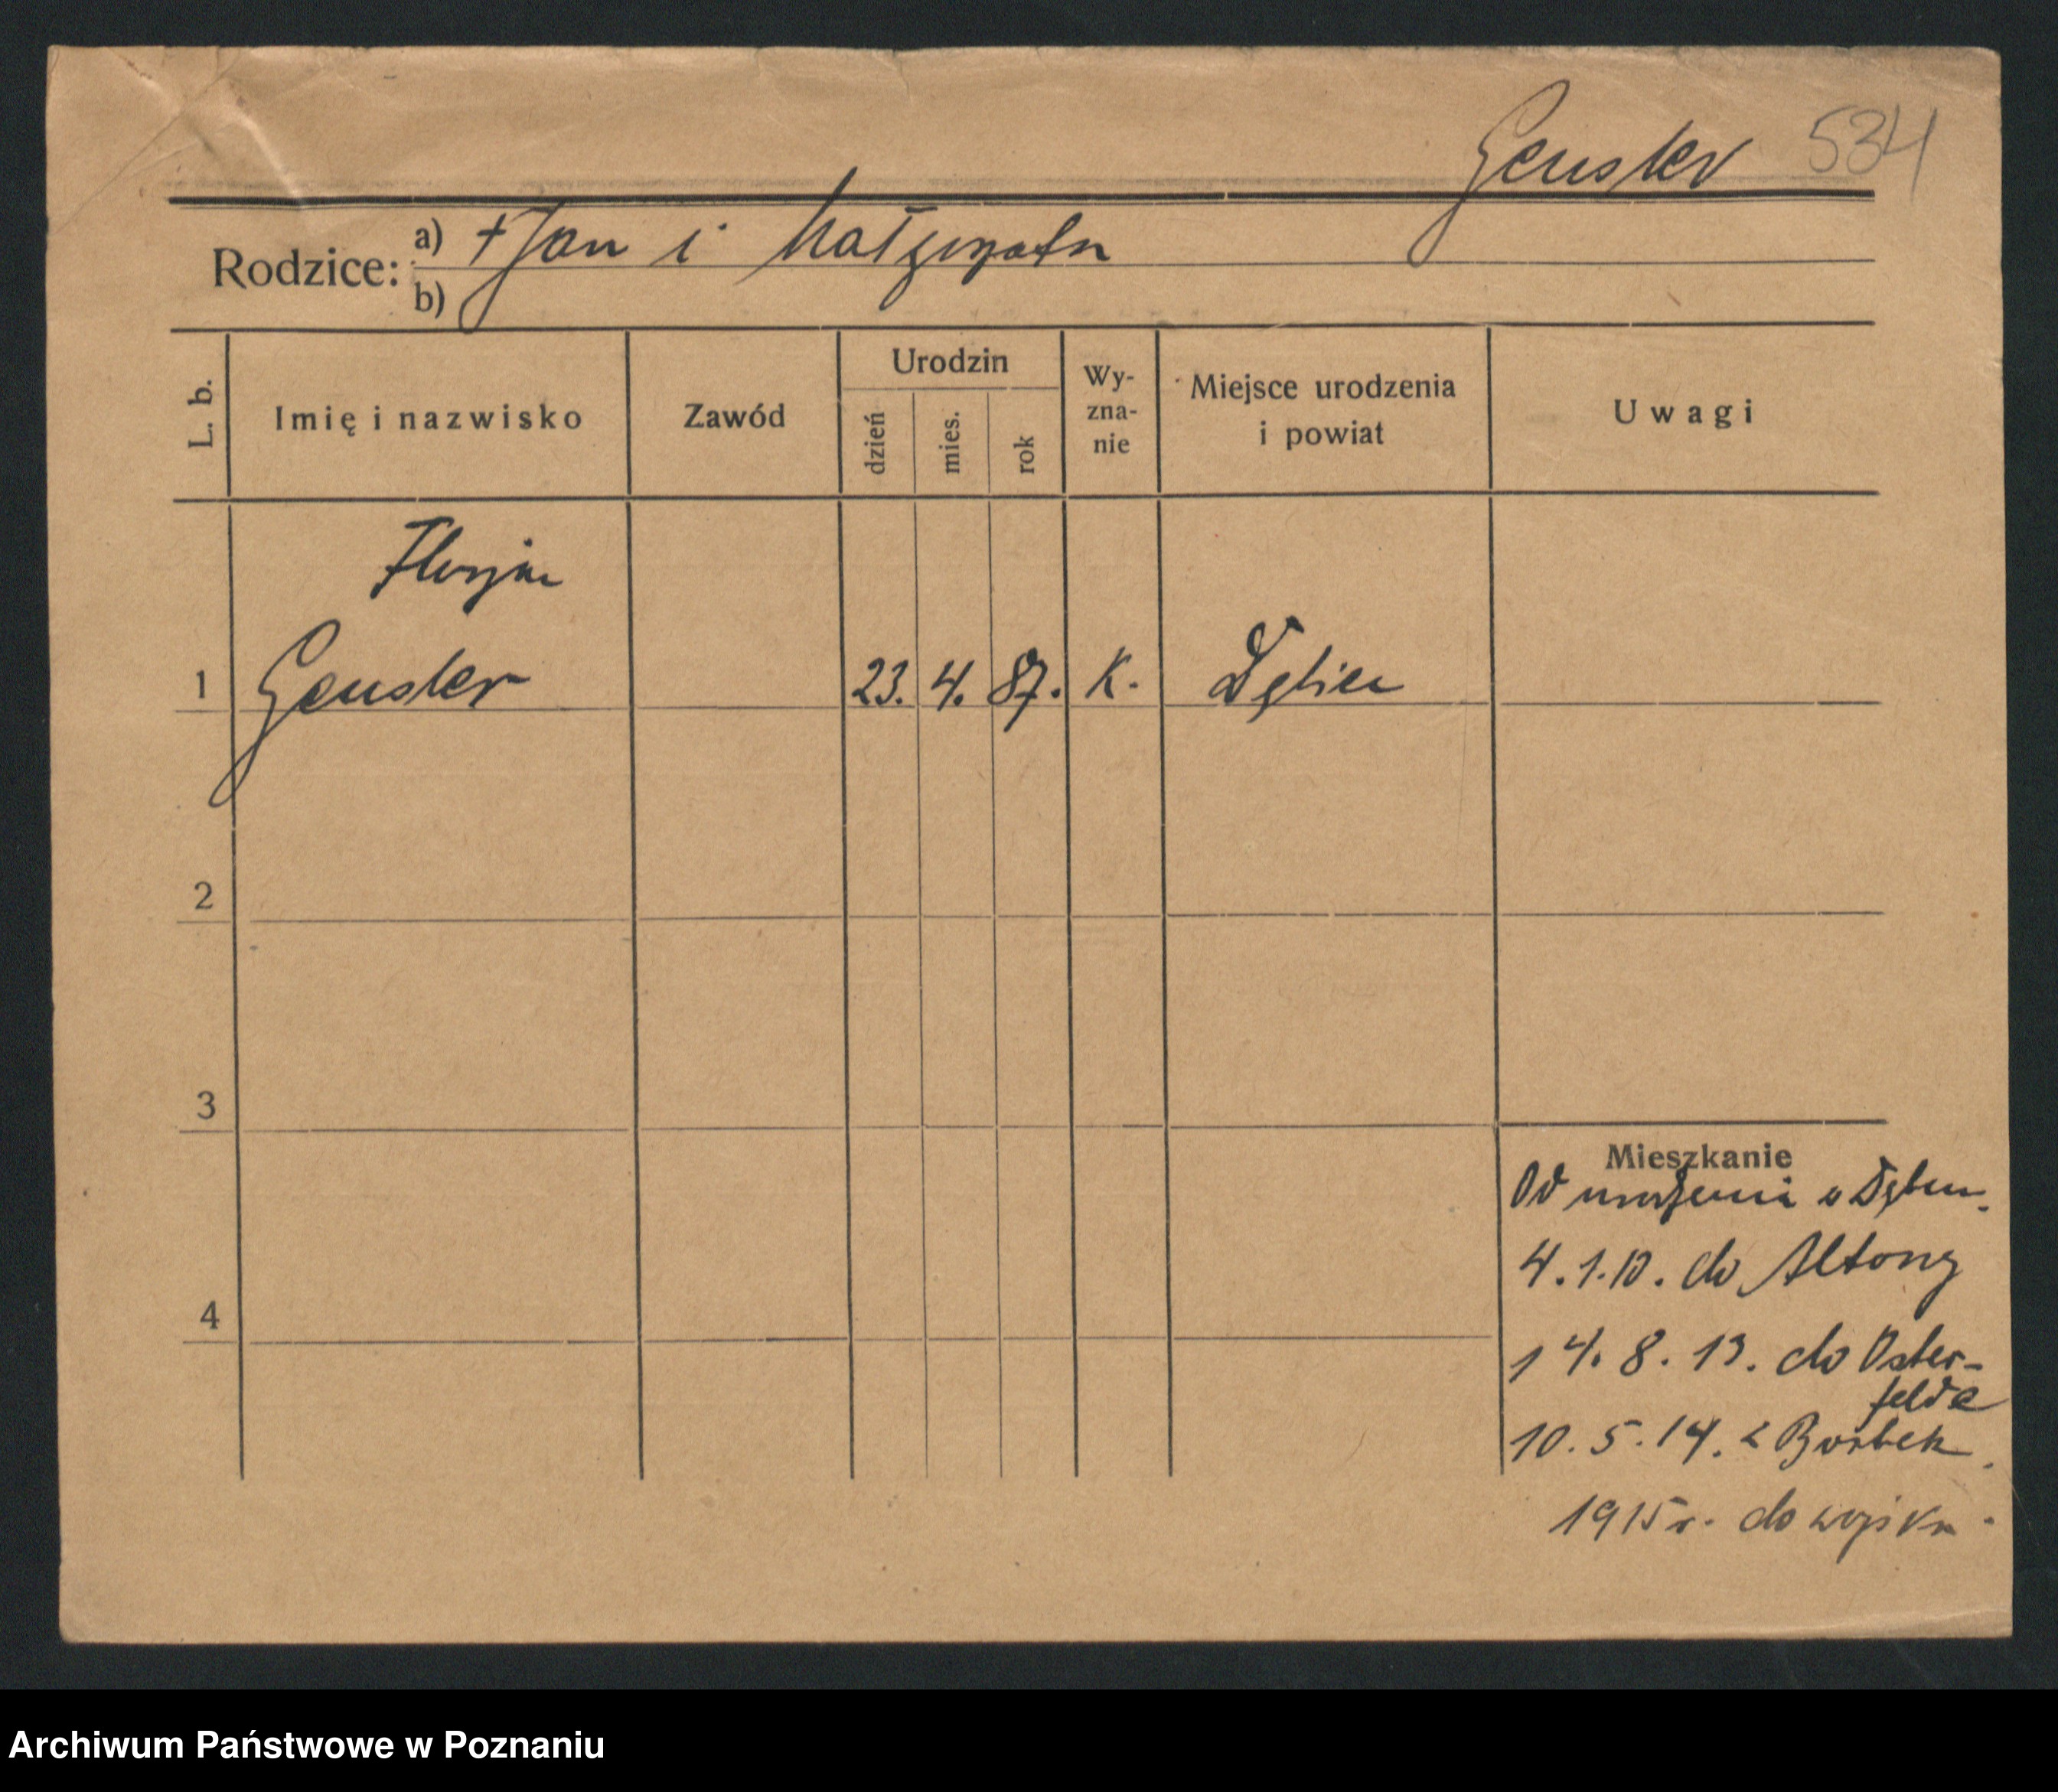 Geusler 534
Rodzice: a) + Jan i Małgorzata
b)
L. b.
Imię i nazwisko
Zawód
Urodzin
dzień
mies.
rok
Wy-
zna-
nie
Miejsce urodzenia
i powiat
Uwagi
Florjan
1 Geusler 23. 4. 87. K. Dębiec
2
3
4
Mieszkanie
Od urodzenia w Dębcu.
4.1.10. do Altony
14. 8. 13. do Oster-
felde
10. 5. 14. z Borbek.
1915 r. do wojska.
Archiwum Państwowe w Poznaniu